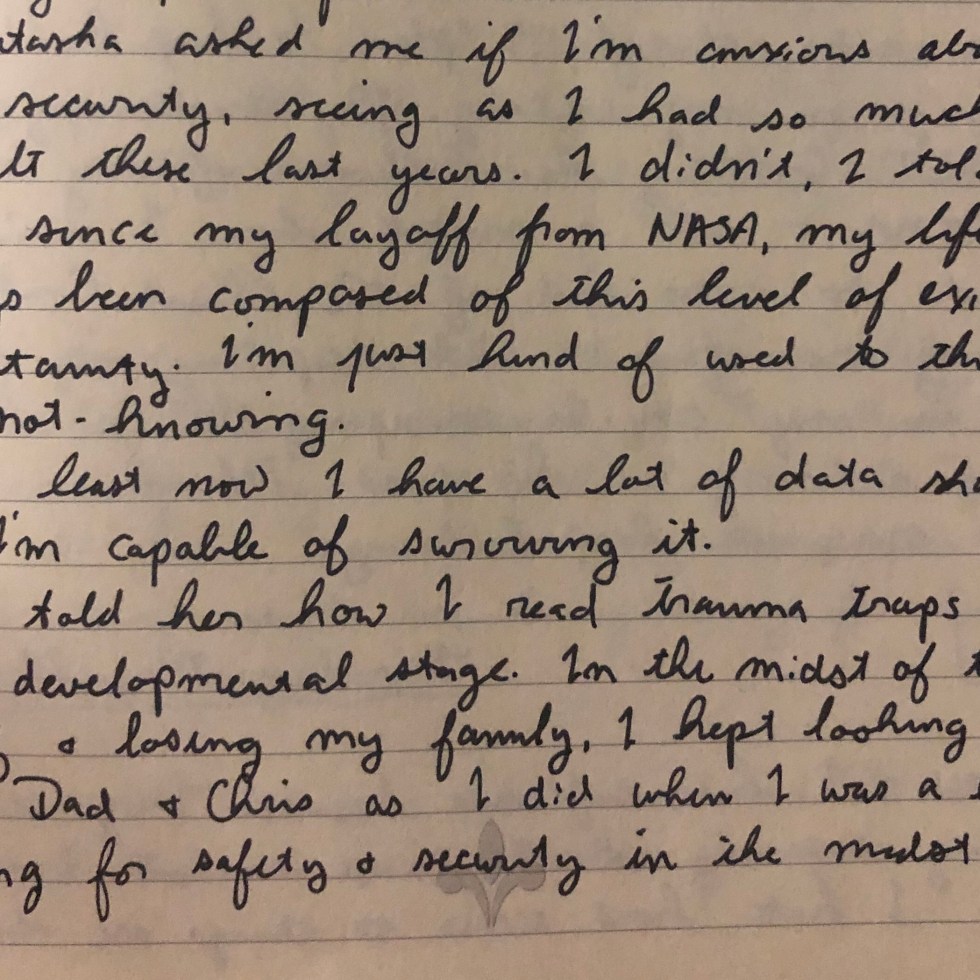 tasha asked me if I'm anxious abo
security, seeing as I had so much
lt these last years. I didn't, I tol
since my layoff from NASA, my life
s been composed of this level of exi
tainty. I'm just kind of used to th
not-knowing.
least now I have a lot of data sho
I'm capable of surviving it.
told her how I read trauma traps
developmental stage. In the midst of t
& losing my family, I kept looking
Dad & Chris as I did when I was a
ng for safety & security in the midst